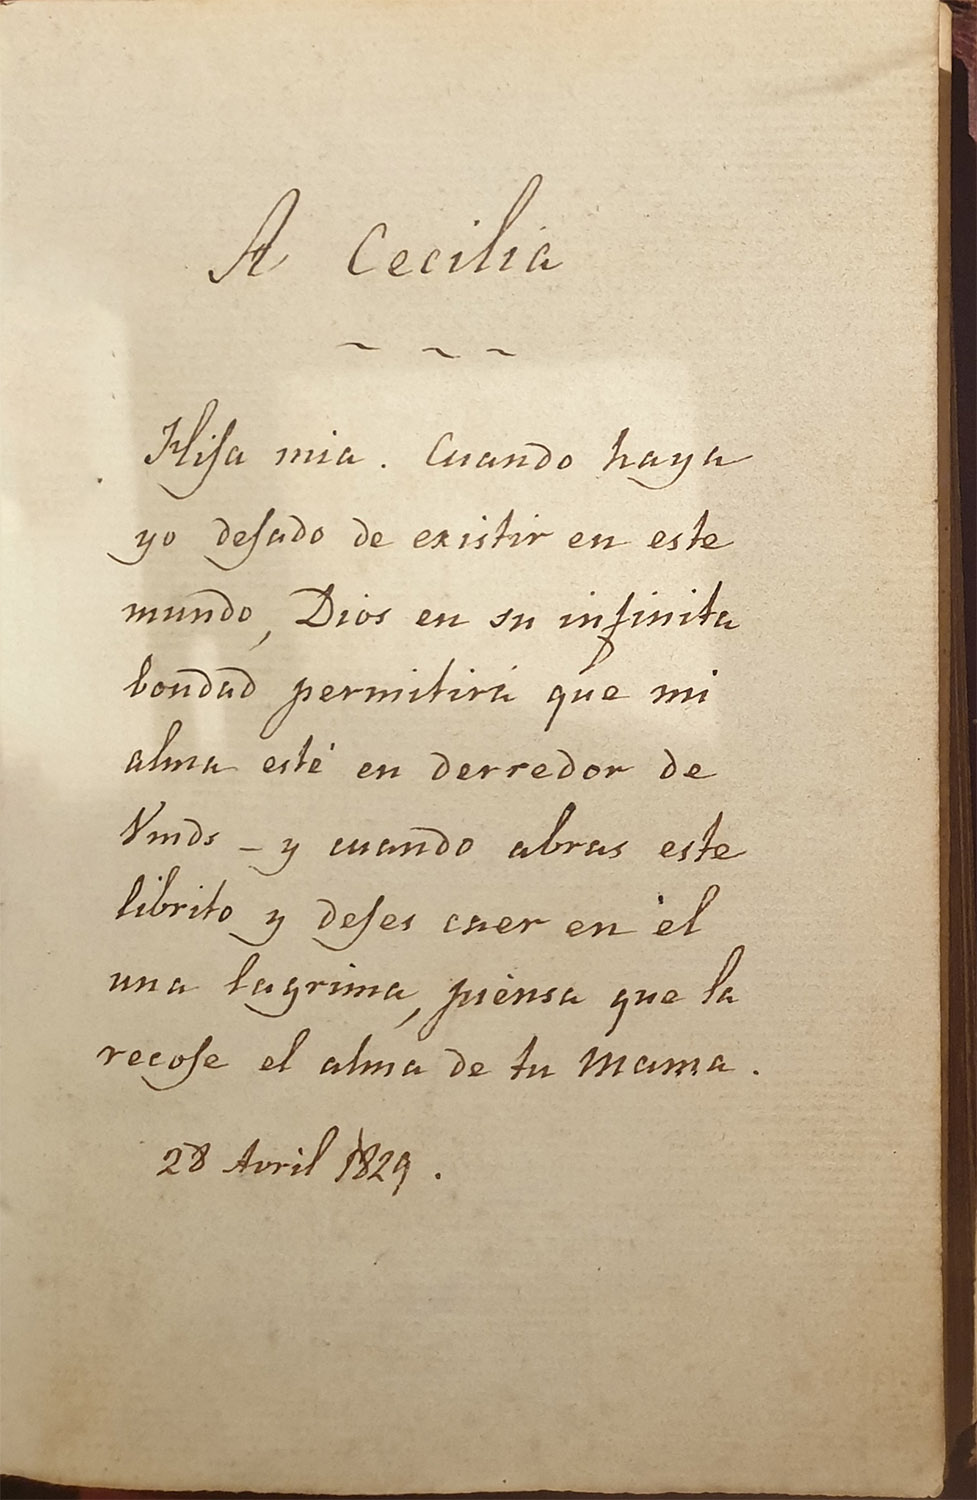 A Cecilia
~ ~ ~
Hija mia. Cuando haya
yo dejado de existir en este
mundo, Dios en su infinita
bondad permitirá que mi
alma esté en derredor de
Vmds - y cuando abras este
librito y dejes caer en él
una lagrima, piensa que la
recoje el alma de tu Mama.
28 Avril 1829.